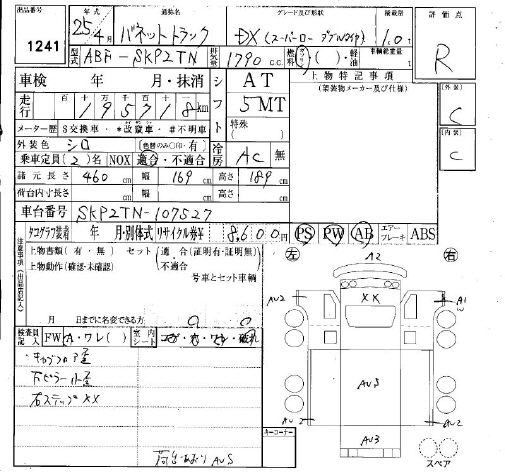 出品番号 年式 通称名 グレード及び形状 積載量 評価点
1241 25/4月 バネットトラック DX (スーパーロー ダブルタイヤ) 1.0t R
型式 ABF-SKP2TN 排気量 1790 c.c. 燃料 ガソリン ( )・軽油 車輌総重量 t
車検 年 月・抹消 シフト AT 上物特記事項
(架装物メーカー及び仕様) 〔外装〕
走行 百 十 万 千 百 十 一 5MT C
19571 8 km
メーター歴 $交換車・*改竄車・#不明車 特殊( ) 〔内装〕
外装色 シロ (色替のみ○印・有) C
乗車定員 (2)名 NOX 適合・不適合 冷房 AC 無
諸元長さ 460 cm 幅 169 cm 高さ 189 cm
荷台内寸長さ cm 幅 cm 高さ cm
車台番号 SKP2TN-107527
タコグラフ装着 年 月・別体式 リサイクル券¥ 8,600円 PS PW AB エアーブレーキ ABS
注意事項(出品店記入)
上物書類(有・無) セット 適合(証明有・証明無) 左 右
上物動作(確認・未確認) 不適合 12
号車とセット車輌
XX
AU2 A1
月 日までに名変できる方
検査員記入 FW A・ワレ( ) 室内シート コゲ・穴・ワレ・破れ
キャブフロア歪
右ピラー小歪
右ステップXX
AUS
AU2 AU2
荷台あおり AUS
キーコーナー AU3
スペア